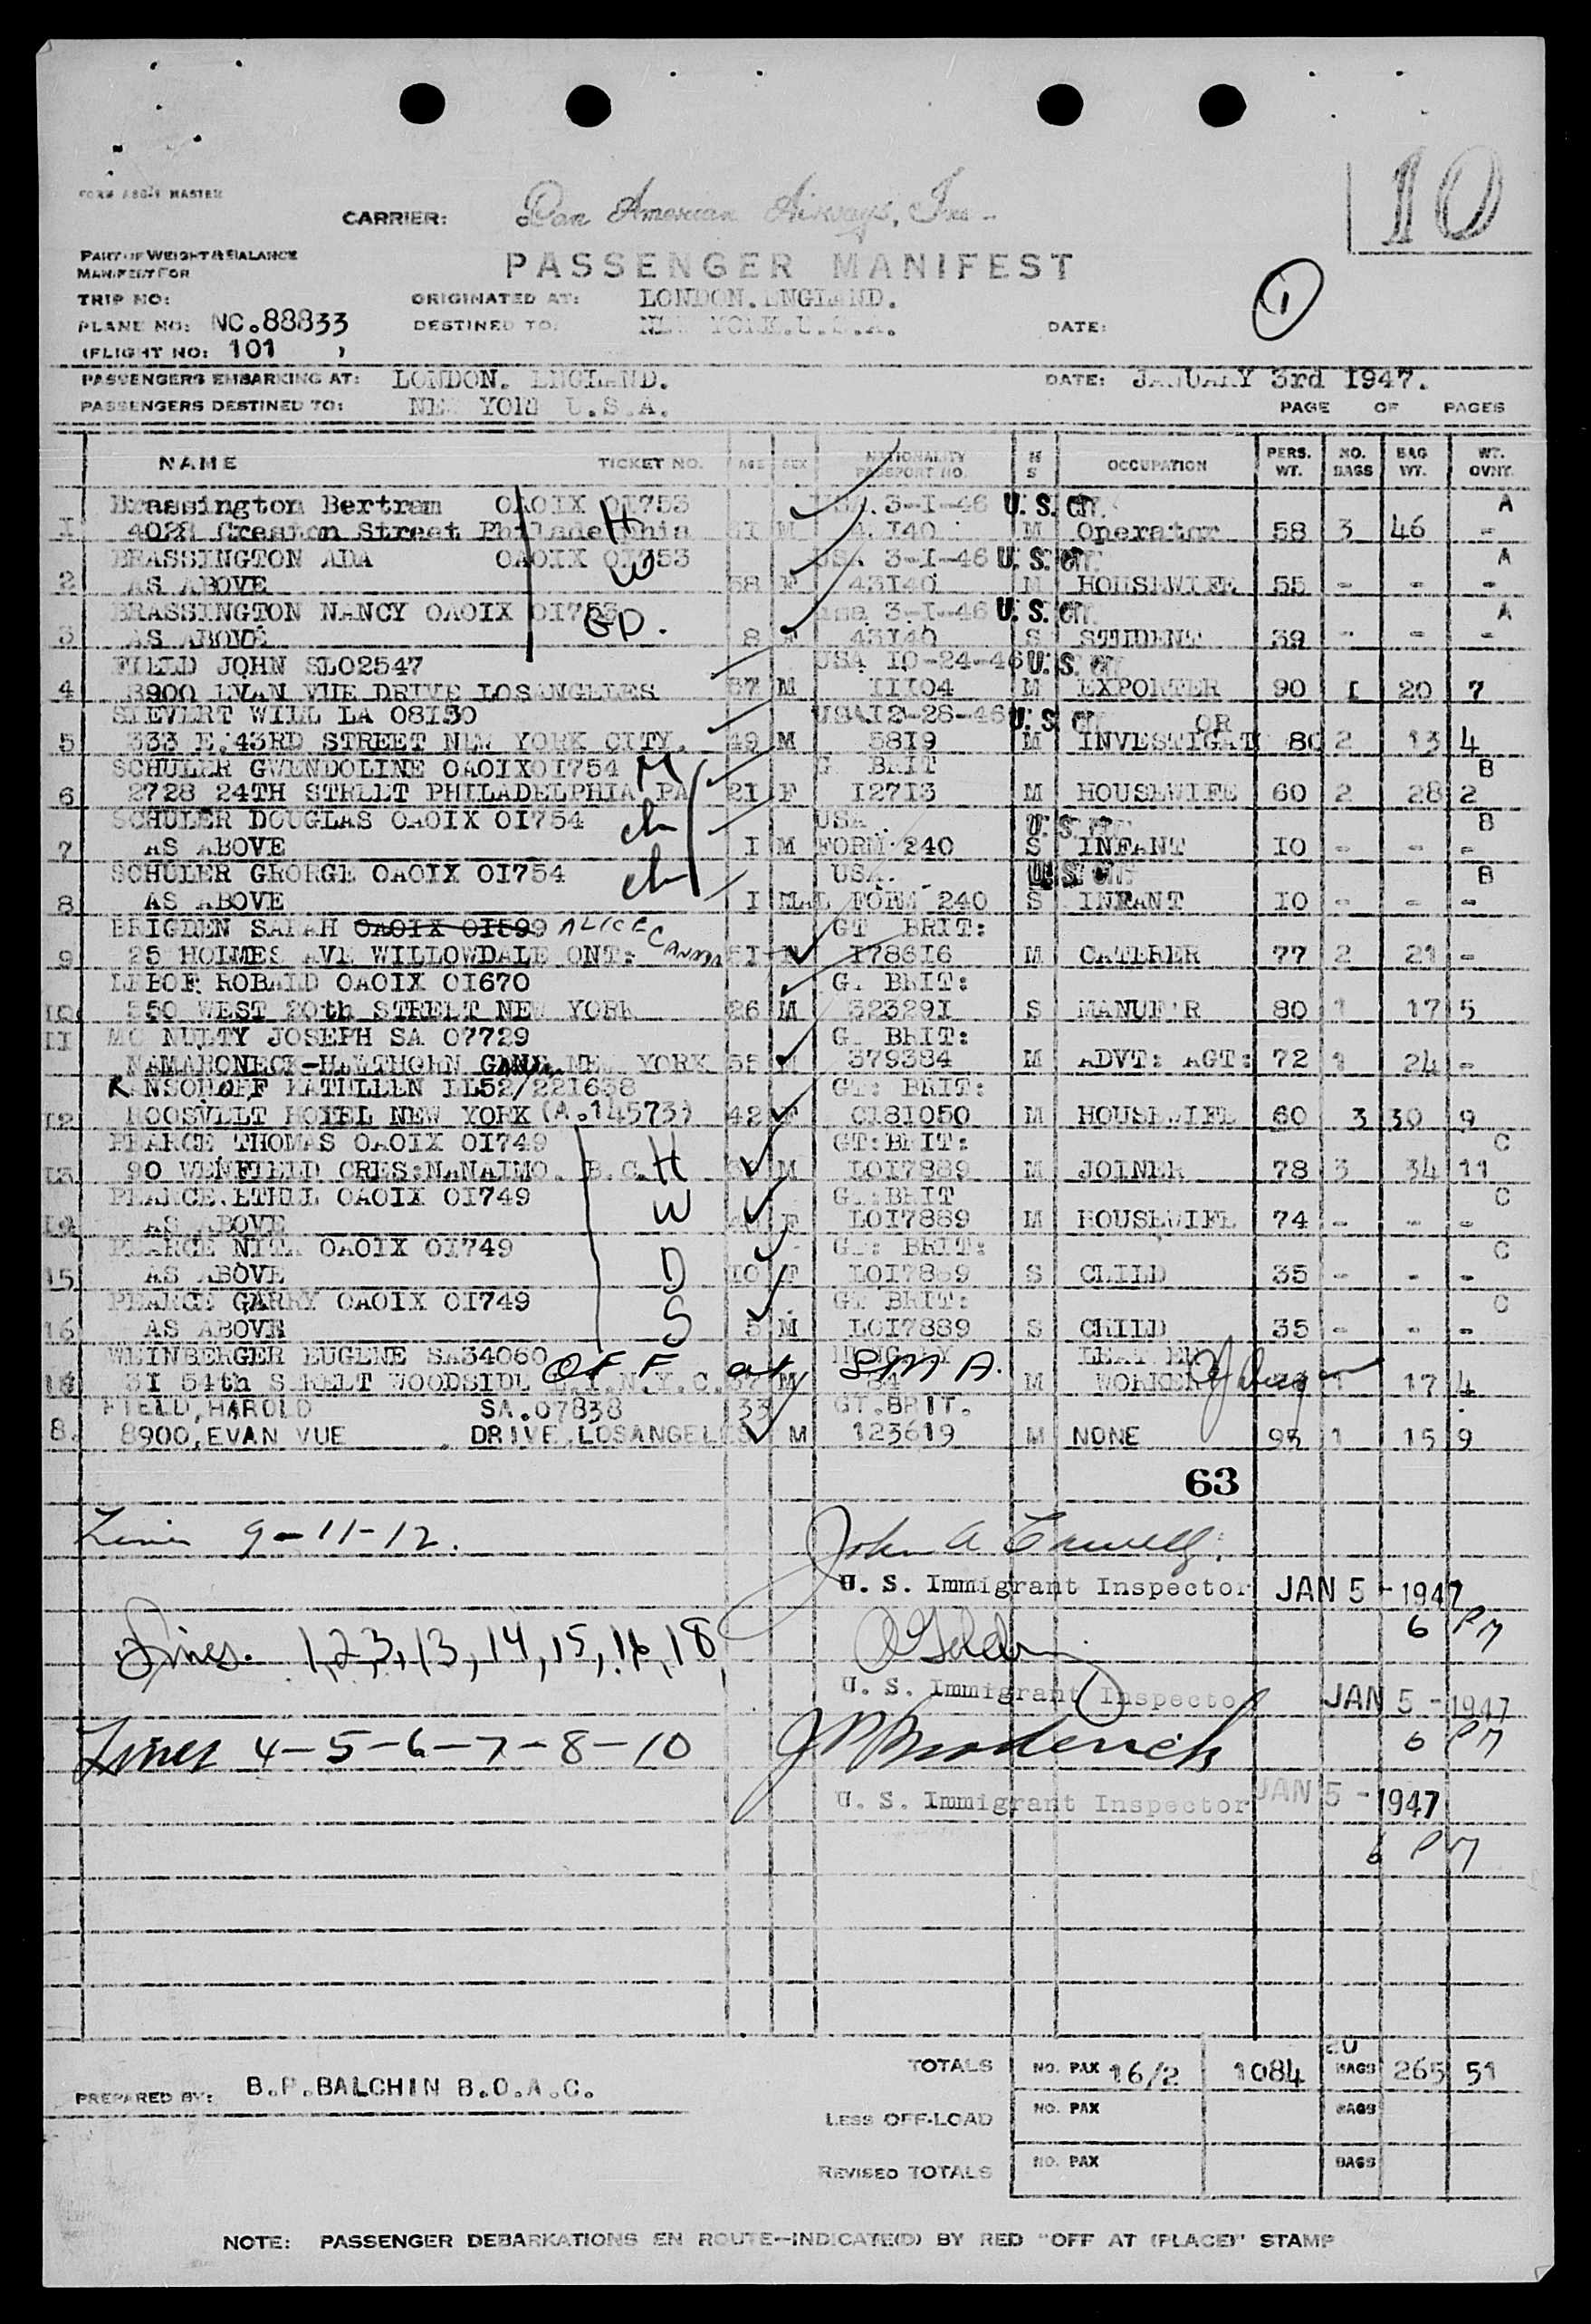 10
FORM MASTER
CARRIER: Pan American Airways, Inc-
PART OF WEIGHT & BALANCE
MANIFEST FOR
PASSENGER MANIFEST
1
TRIP NO: ORIGINATED AT: LONDON. ENGLAND.
PLANE NO: NC.88833 DESTINED TO: NEW YORK.U.S.A. DATE:
(FLIGHT NO: 101 )
PASSENGERS EMBARKING AT: LONDON. ENGLAND. DATE: JANUARY 3rd 1947.
PASSENGERS DESTINED TO: NEW YORK U.S.A. PAGE OF PAGES
NAME TICKET NO. AGE SEX NATIONALITY PASSPORT NO. M S OCCUPATION PERS. WT. NO. BAGS BAG WT. WT. OVNT.
Brassington Bertram OAOIX OI753 USA. 3-I-46 U. S. CIT. A
1 4028 Creston Street Philadelphia H M M Operator 58 3 46 -
BRASSINGTON ADA OAOIX OI753 USA 3-I-46 U. S. CIT. A
2 AS ABOVE W 58 F 43140 M HOUSEWIFE 55 - - -
BRASSINGTON NANCY OAOIX OI753 USA 3-I-46 U. S. CIT. A
3 AS ABOVE GD. 8 F 43140 S STUDENT 39 - - -
FIELD JOHN SL02547 USA IO-24-46 U. S. CIT.
4 8900 EVAN VUE DRIVE LOSANGELES 37 M III04 M EXPORTER 90 I 20 7
SIEVERT WILL LA 08I30 USA I2-28-46 U. S. CIT. OR
5 333 E. 43RD STREET NEW YORK CITY. 49 M 58I9 M INVESTIGAT 80 2 13 4
SCHULER GWENDOLINE OAOIXOI754 M G BRIT B
6 2728 24TH STREET PHILADELPHIA PA 21 F I27I3 M HOUSEWIFE 60 2 28 2
SCHULER DOUGLAS OAOIX OI754 ch USA. U. S. CIT. B
7 AS ABOVE I M FORM 240 S INFANT IO - - -
SCHULER GEORGE OAOIX OI754 ch USA. U. S. CIT. B
8 AS ABOVE I MAL FORM 240 S INFANT IO - - -
BRIGDEN SARAH OAOIX OI599 ALICE CANADA GT BRIT:
9 25 HOLMES AVE WILLOWDALE ONT: 51 F I786I6 M CATERER 77 2 21 -
OAOIX OI670 G. BRIT:
10 550 WEST 20th STREET NEW YORK 26 M 32329I S MANUF'R 80 1 17 5
II MC NULTY JOSEPH SA 07729 G. BRIT:
NEW YORK 55 M 379384 M ADVT: AGT: 72 1 24 -
KATHLEEN LL52/221638 GT: BRIT:
12 ROOSVELT HOTEL NEW YORK (A.14573) 42 F C181050 M HOUSEWIFE 60 3 30 9
PEARCE THOMAS OAOIX OI749 GT:BRIT: C
13 90 WENFIELD CRES:NANAIMO. B.C. H M LOI7889 M JOINER 78 3 34 11
PEARCE.ETHEL OAOIX OI749 GT:BRIT C
14 AS ABOVE W F LOI7889 M HOUSEWIFE 74 - - -
PEARCE NITA OAOIX OI749 GT: BRIT: C
15 AS ABOVE D IO F LOI7889 S CHILD 35 - - -
PEARCE GARRY OAOIX OI749 GT BRIT: C
16 AS ABOVE S 5 M LOI7889 S CHILD 35 - - -
WEINBERGER EUGENE SA34060 OFF at SMA. LEATHER
3I 54th STREET WOODSIDE L.I.N.Y.C. M M WORKER 17 4
FIELD, HAROLD SA.07838 33 GT.BRIT.
8. 8900,EVAN VUE DRIVE.LOSANGELES M 123619 M NONE 95 1 15 9
63
Lines 9-11-12.
U. S. Immigrant Inspector JAN 5 - 1947
6 PM
Lines. 1,2,3,13,14,15,16,18
U. S. Immigrant Inspector JAN 5 - 1947
6 PM
Lines 4-5-6-7-8-10 J P Broderick
U. S. Immigrant Inspector JAN 5 - 1947
6 PM
TOTALS NO. PAX 16/2 1084 20 BAGS 265 51
PREPARED BY: B.P.BALCHIN B.O.A.C.
LESS OFF-LOAD NO. PAX BAGS
REVISED TOTALS NO. PAX BAGS
NOTE: PASSENGER DEBARKATIONS EN ROUTE—INDICATE(D) BY RED "OFF AT (PLACE)" STAMP